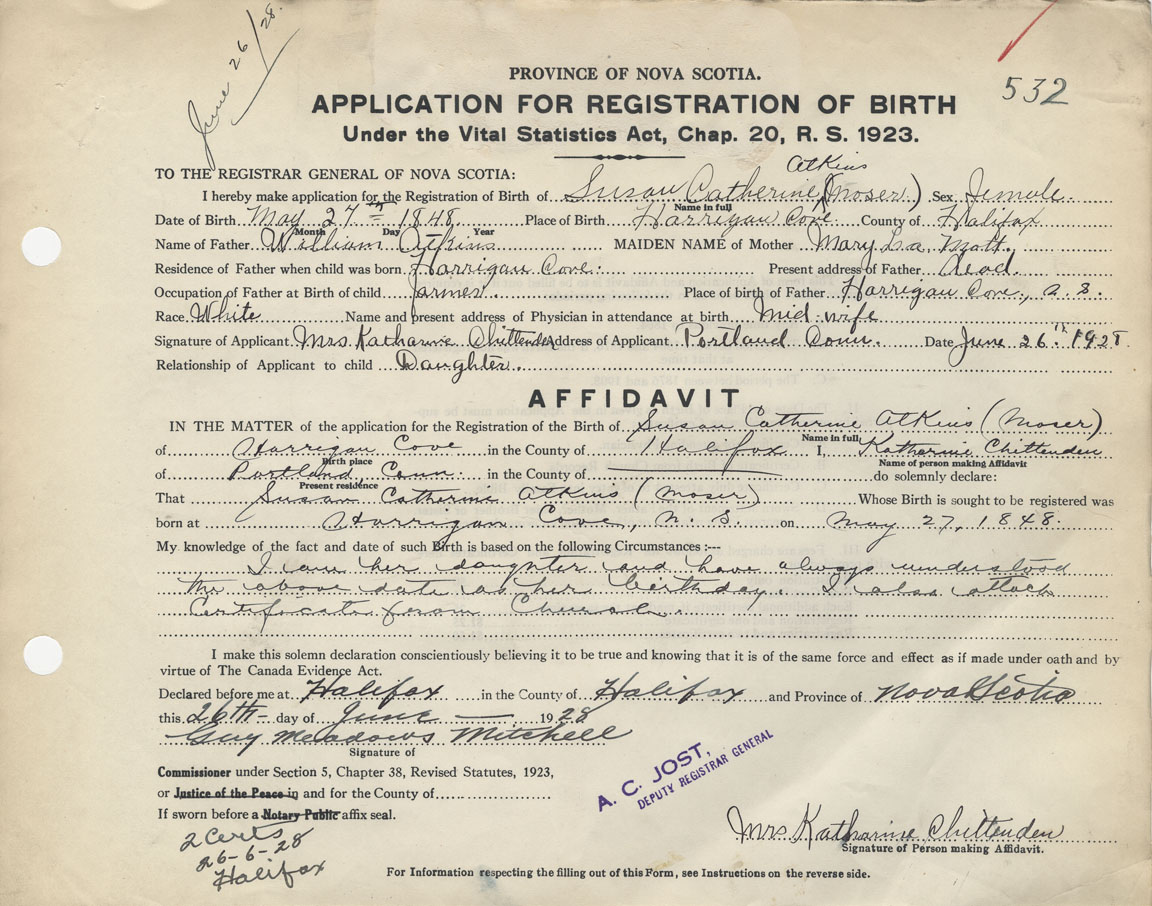 June 26/28.
532
PROVINCE OF NOVA SCOTIA.
APPLICATION FOR REGISTRATION OF BIRTH
Under the Vital Statistics Act, Chap. 20, R. S. 1923.
TO THE REGISTRAR GENERAL OF NOVA SCOTIA:
Atkins
I hereby make application for the Registration of Birth of Susan Catherine (Moser) Sex Female.
Name in full
Date of Birth May 27th 1848 Place of Birth Harrigan Cove County of Halifax
Month Day Year
Name of Father William Atkins MAIDEN NAME of Mother Mary
Residence of Father when child was born Harrigan Cove. Present address of Father dead.
Occupation of Father at Birth of child farmer. Place of birth of Father Harrigan Cove, N. S.
Race White Name and present address of Physician in attendance at birth Mid-wife
Signature of Applicant Mrs Katharine Chittenden Address of Applicant Portland Conn. Date June 26th 1928.
Relationship of Applicant to child Daughter.
AFFIDAVIT
IN THE MATTER of the application for the Registration of the Birth of Susan Catherine Atkins (Moser)
Name in full
of Harrigan Cove in the County of Halifax I, Katharine Chittenden
Birth place Name of person making Affidavit
of Portland, Conn. in the County of do solemnly declare:
Present residence
That Susan Catherine Atkins (Moser) Whose Birth is sought to be registered was
born at Harrigan Cove, N. S. on May 27, 1848.
My knowledge of the fact and date of such Birth is based on the following Circumstances :---
I am her daughter and have always understood
the above date as her birthday. I also attach
Certificate from Church.
I make this solemn declaration conscientiously believing it to be true and knowing that it is of the same force and effect as if made under oath and by
virtue of The Canada Evidence Act.
Declared before me at Halifax in the County of Halifax and Province of Nova Scotia
this 26th day of June 1928
Guy Meadows Mitchell
Signature of
Commissioner under Section 5, Chapter 38, Revised Statutes, 1923,
or Justice of the Peace in and for the County of
If sworn before a Notary Public affix seal.
A. C. JOST,
DEPUTY REGISTRAR GENERAL
2 Certs
26-6-28
Halifax
Mrs Katharine Chittenden
Signature of Person making Affidavit.
For Information respecting the filling out of this Form, see Instructions on the reverse side.